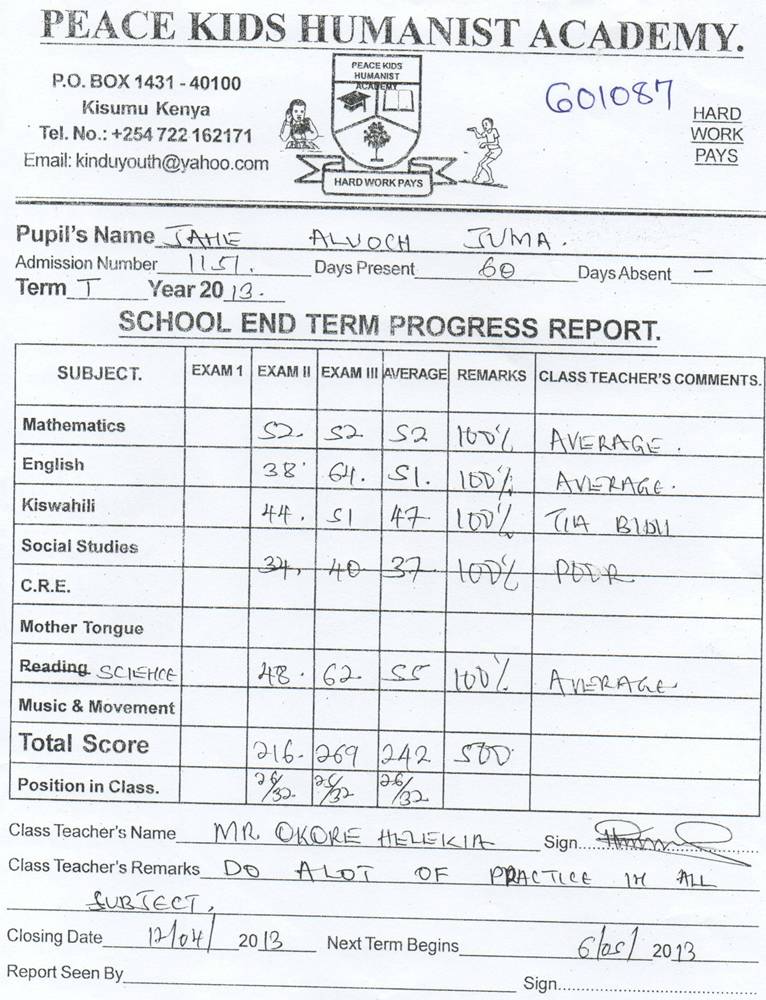 PEACE KIDS HUMANIST ACADEMY.
P.O. BOX 1431 - 40100
Kisumu Kenya
Tel. No.: +254 722 162171
Email: kinduyouth@yahoo.com
PEACE KIDS
HUMANIST
ACADEMY
HARD WORK PAYS
G01087
HARD
WORK
PAYS
Pupil's Name JANE ALUOCH JUMA.
Admission Number 1151. Days Present 60 Days Absent —
Term I Year 2013.
SCHOOL END TERM PROGRESS REPORT.
SUBJECT. EXAM 1 EXAM II EXAM III AVERAGE REMARKS CLASS TEACHER'S COMMENTS.
Mathematics 52. 52 52 100% AVERAGE.
English 38 64. 51. 100% AVERAGE.
Kiswahili 44. 51 47 100% TIA BIDII
Social Studies
34, 40 37 100% POOR
C.R.E.
Mother Tongue
Reading SCIENCE 48. 62. 55 100% AVERAGE
Music & Movement
Total Score 216. 269 242 500
Position in Class. 26/32 26/32 26/32
Class Teacher's Name MR. OKORE HEZEKIA Sign.....
Class Teacher's Remarks DO ALOT OF PRACTICE IN ALL
SUBJECT,
Closing Date 12/04/ 2013 Next Term Begins 6/05/ 2013
Report Seen By Sign.....